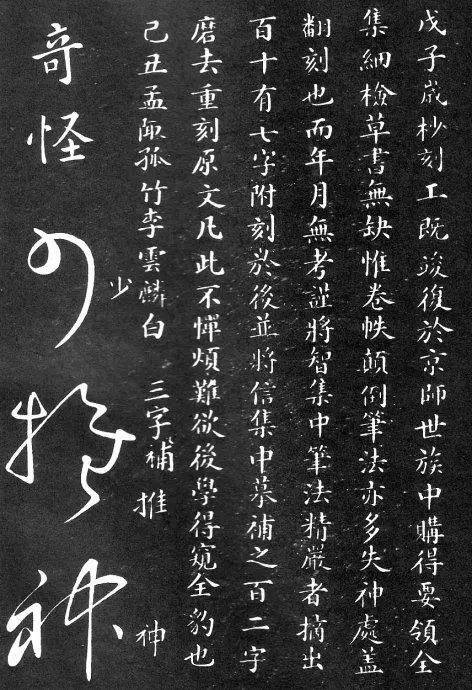 戊子歲杪刻工既竣復於京師世族中購得要領全
集細檢草書無缺惟卷帙顛倒筆法亦多失神處蓋
翻刻也而年月無考謹將智集中筆法精嚴者摘出
百十有七字附刻於後並將信集中摹補之百二字
磨去重刻原文凡此不憚煩難欲後學得窺全豹也
己丑孟陬孤竹李雲麟白 三字補
少
推
神
奇怪少推神